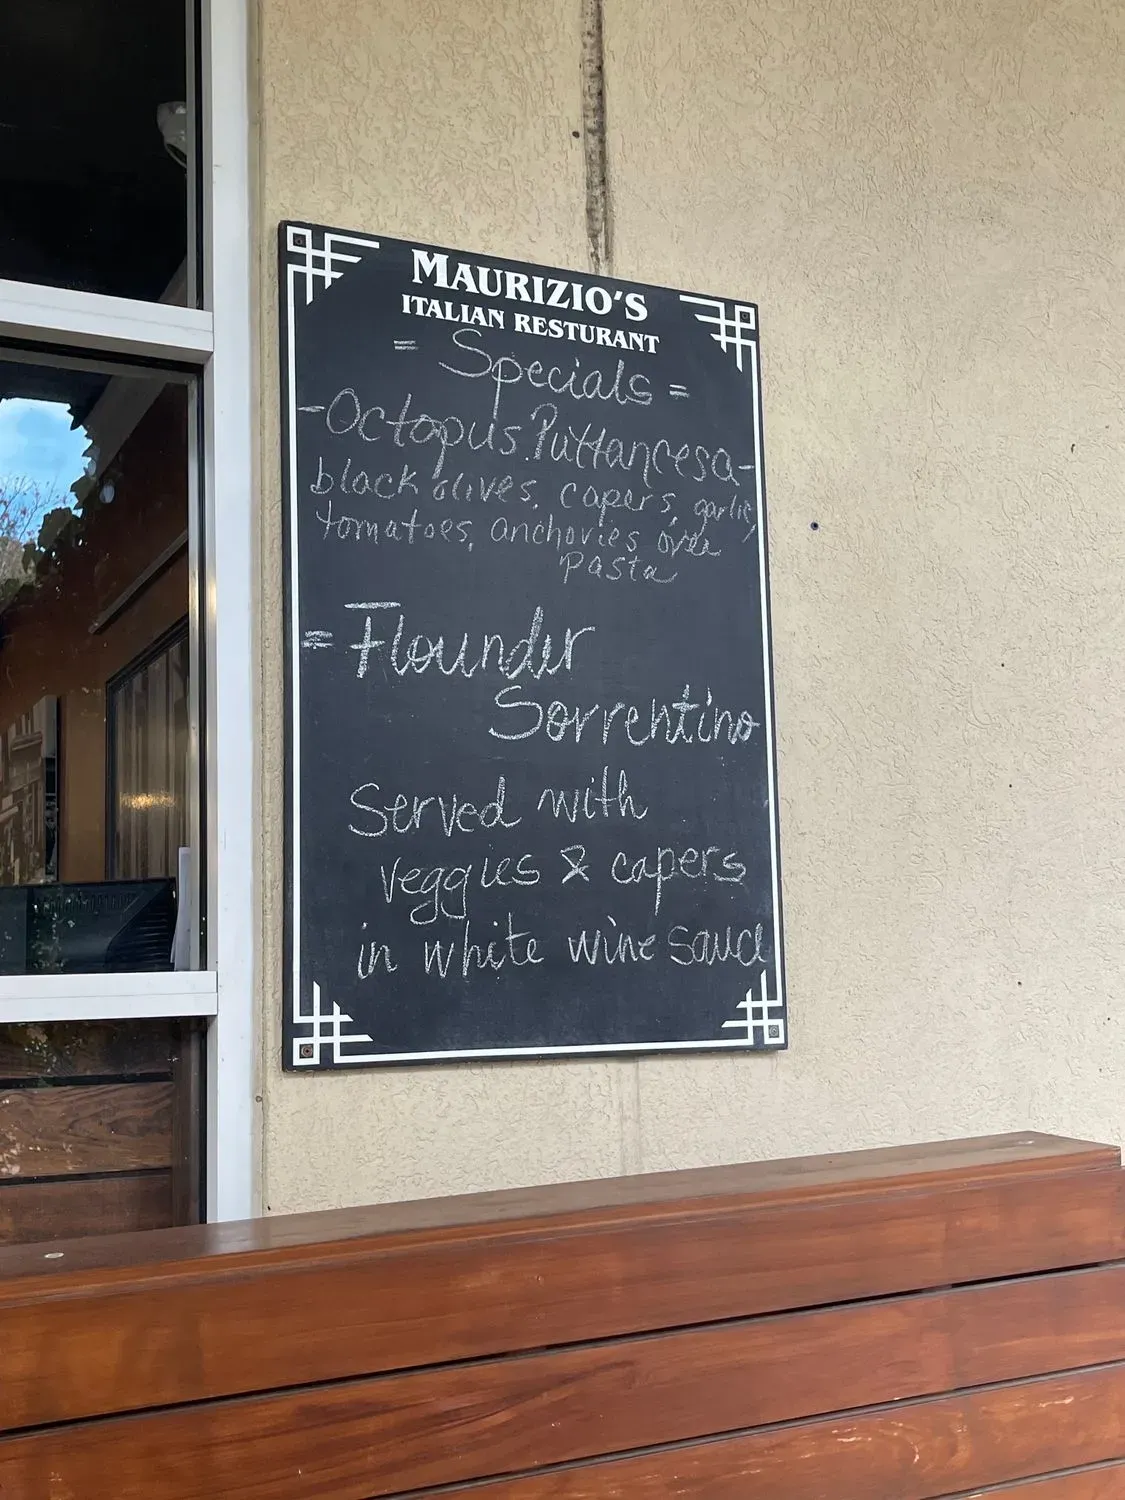 MAURIZIO'S
ITALIAN RESTURANT
= Specials =
-Octopus Puttancesa-
black olives, capers, garlic,
tomatoes, anchovies over
pasta
= Flounder
Sorrentino
Served with
veggies & capers
in white wine sauce